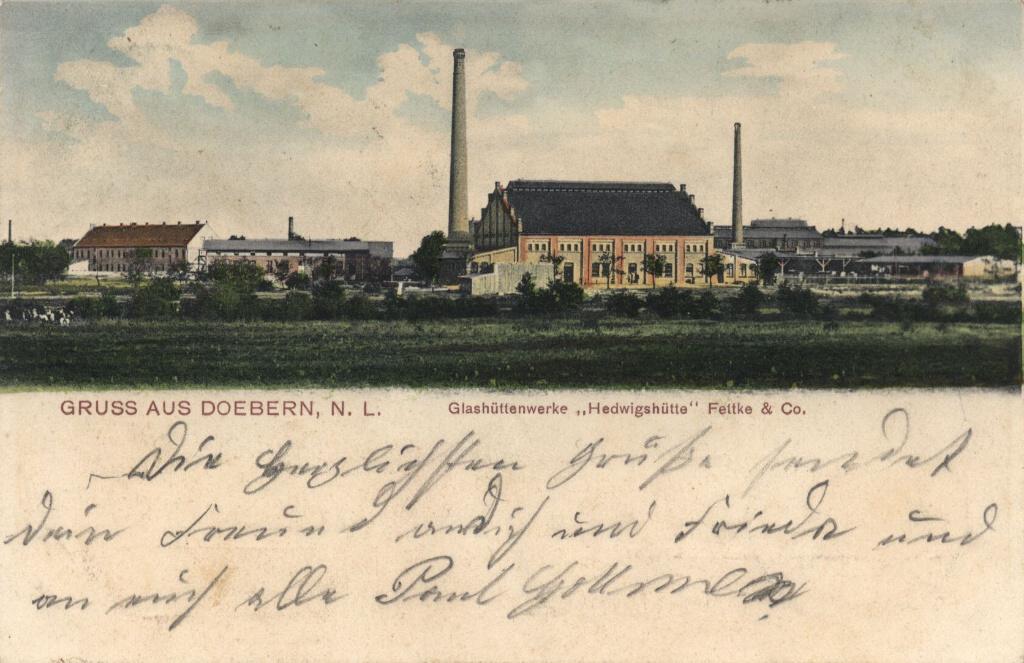 GRUSS AUS DOEBERN, N. L. Glashüttenwerke „Hedwigshütte" Fettke & Co.
Die Herzlichsten Grüße sendet
dein Freund an dich und Frieda und
an euch alle Paul